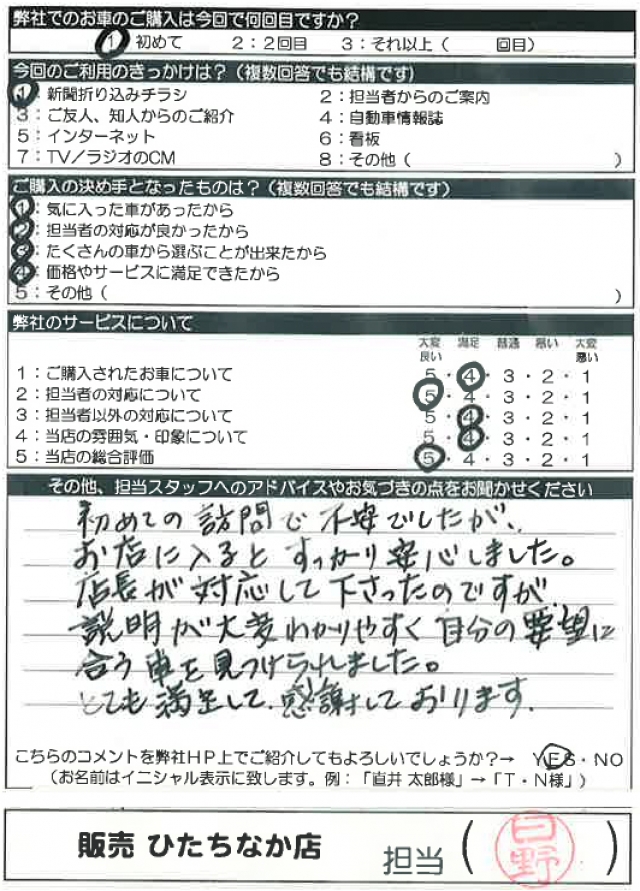 弊社でのお車のご購入は今回で何回目ですか？
1 初めて 2：2回目 3：それ以上（ 回目）
今回のご利用のきっかけは？（複数回答でも結構です）
1：新聞折り込みチラシ 2：担当者からのご案内
3：ご友人、知人からのご紹介 4：自動車情報誌
5：インターネット 6：看板
7：TV／ラジオのCM 8：その他（ ）
ご購入の決め手となったものは？（複数回答でも結構です）
1：気に入った車があったから
2：担当者の対応が良かったから
3：たくさんの車から選ぶことが出来たから
4：価格やサービスに満足できたから
5：その他（ ）
弊社のサービスについて
大変良い 満足 普通 悪い 大変悪い
1：ご購入されたお車について 5・4・3・2・1
2：担当者の対応について 5・4・3・2・1
3：担当者以外の対応について 5・4・3・2・1
4：当店の雰囲気・印象について 5・4・3・2・1
5：当店の総合評価 5・4・3・2・1
その他、担当スタッフへのアドバイスやお気づきの点をお聞かせください
初めての訪問で不安でしたが、
お店に入るとすっかり安心しました。
店長が対応して下さったのですが
説明が大変わかりやすく自分の要望に
合う車を見つけられました。
とても満足して、感謝しております。
こちらのコメントを弊社HP上でご紹介してもよろしいでしょうか？→ YES・NO
（お名前はイニシャル表示に致します。例：「直井 太郎様」→「T・N様」）
販売 ひたちなか店 担当（日野）